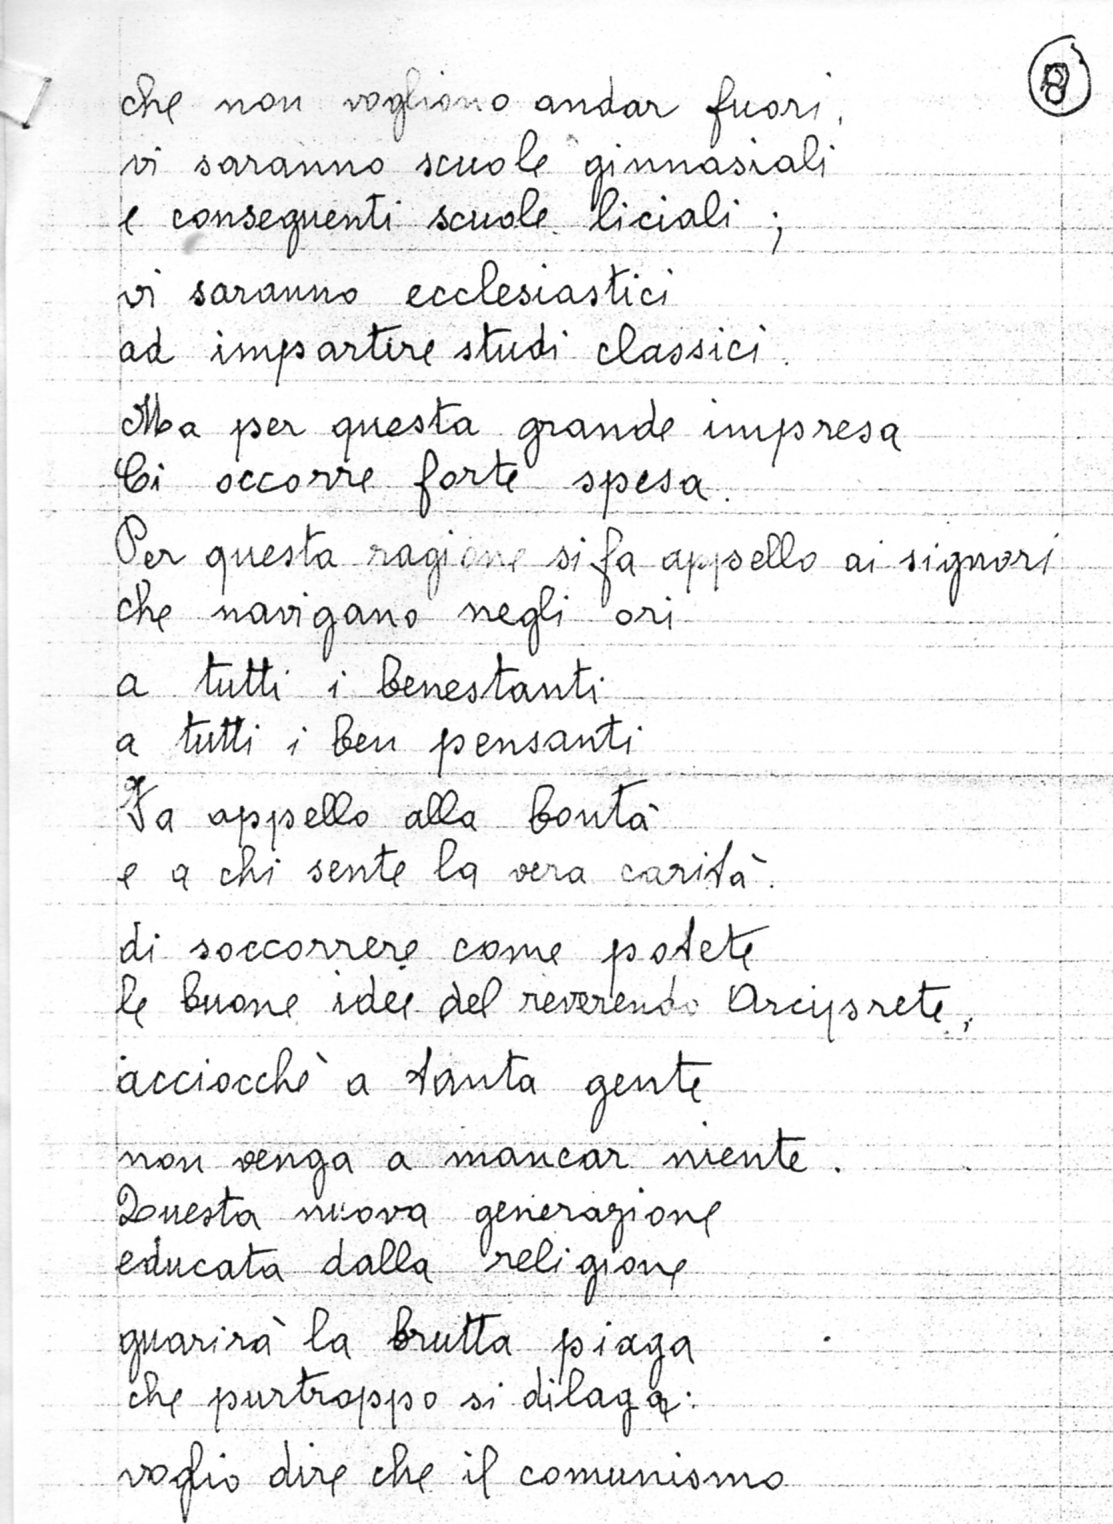 8
che non vogliono andar fuori,
vi saranno scuole ginnasiali
e conseguenti scuole liciali;
vi saranno ecclesiastici
ad impartire studi classici.
Ma per questa grande impresa
Ci occorre forte spesa.
Per questa ragione si fa appello ai signori
che navigano negli ori
a tutti i benestanti
a tutti i ben pensanti
Fa appello alla bontà
e a chi sente la vera carità.
di soccorrere come potete
le buone idee del reverendo Arciprete,
acciocchè a tanta gente
non venga a mancar niente.
Questa nuova generazione
educata dalla religione
guarirà la brutta piaga
che purtroppo si dilaga:
voglio dire che il comunismo